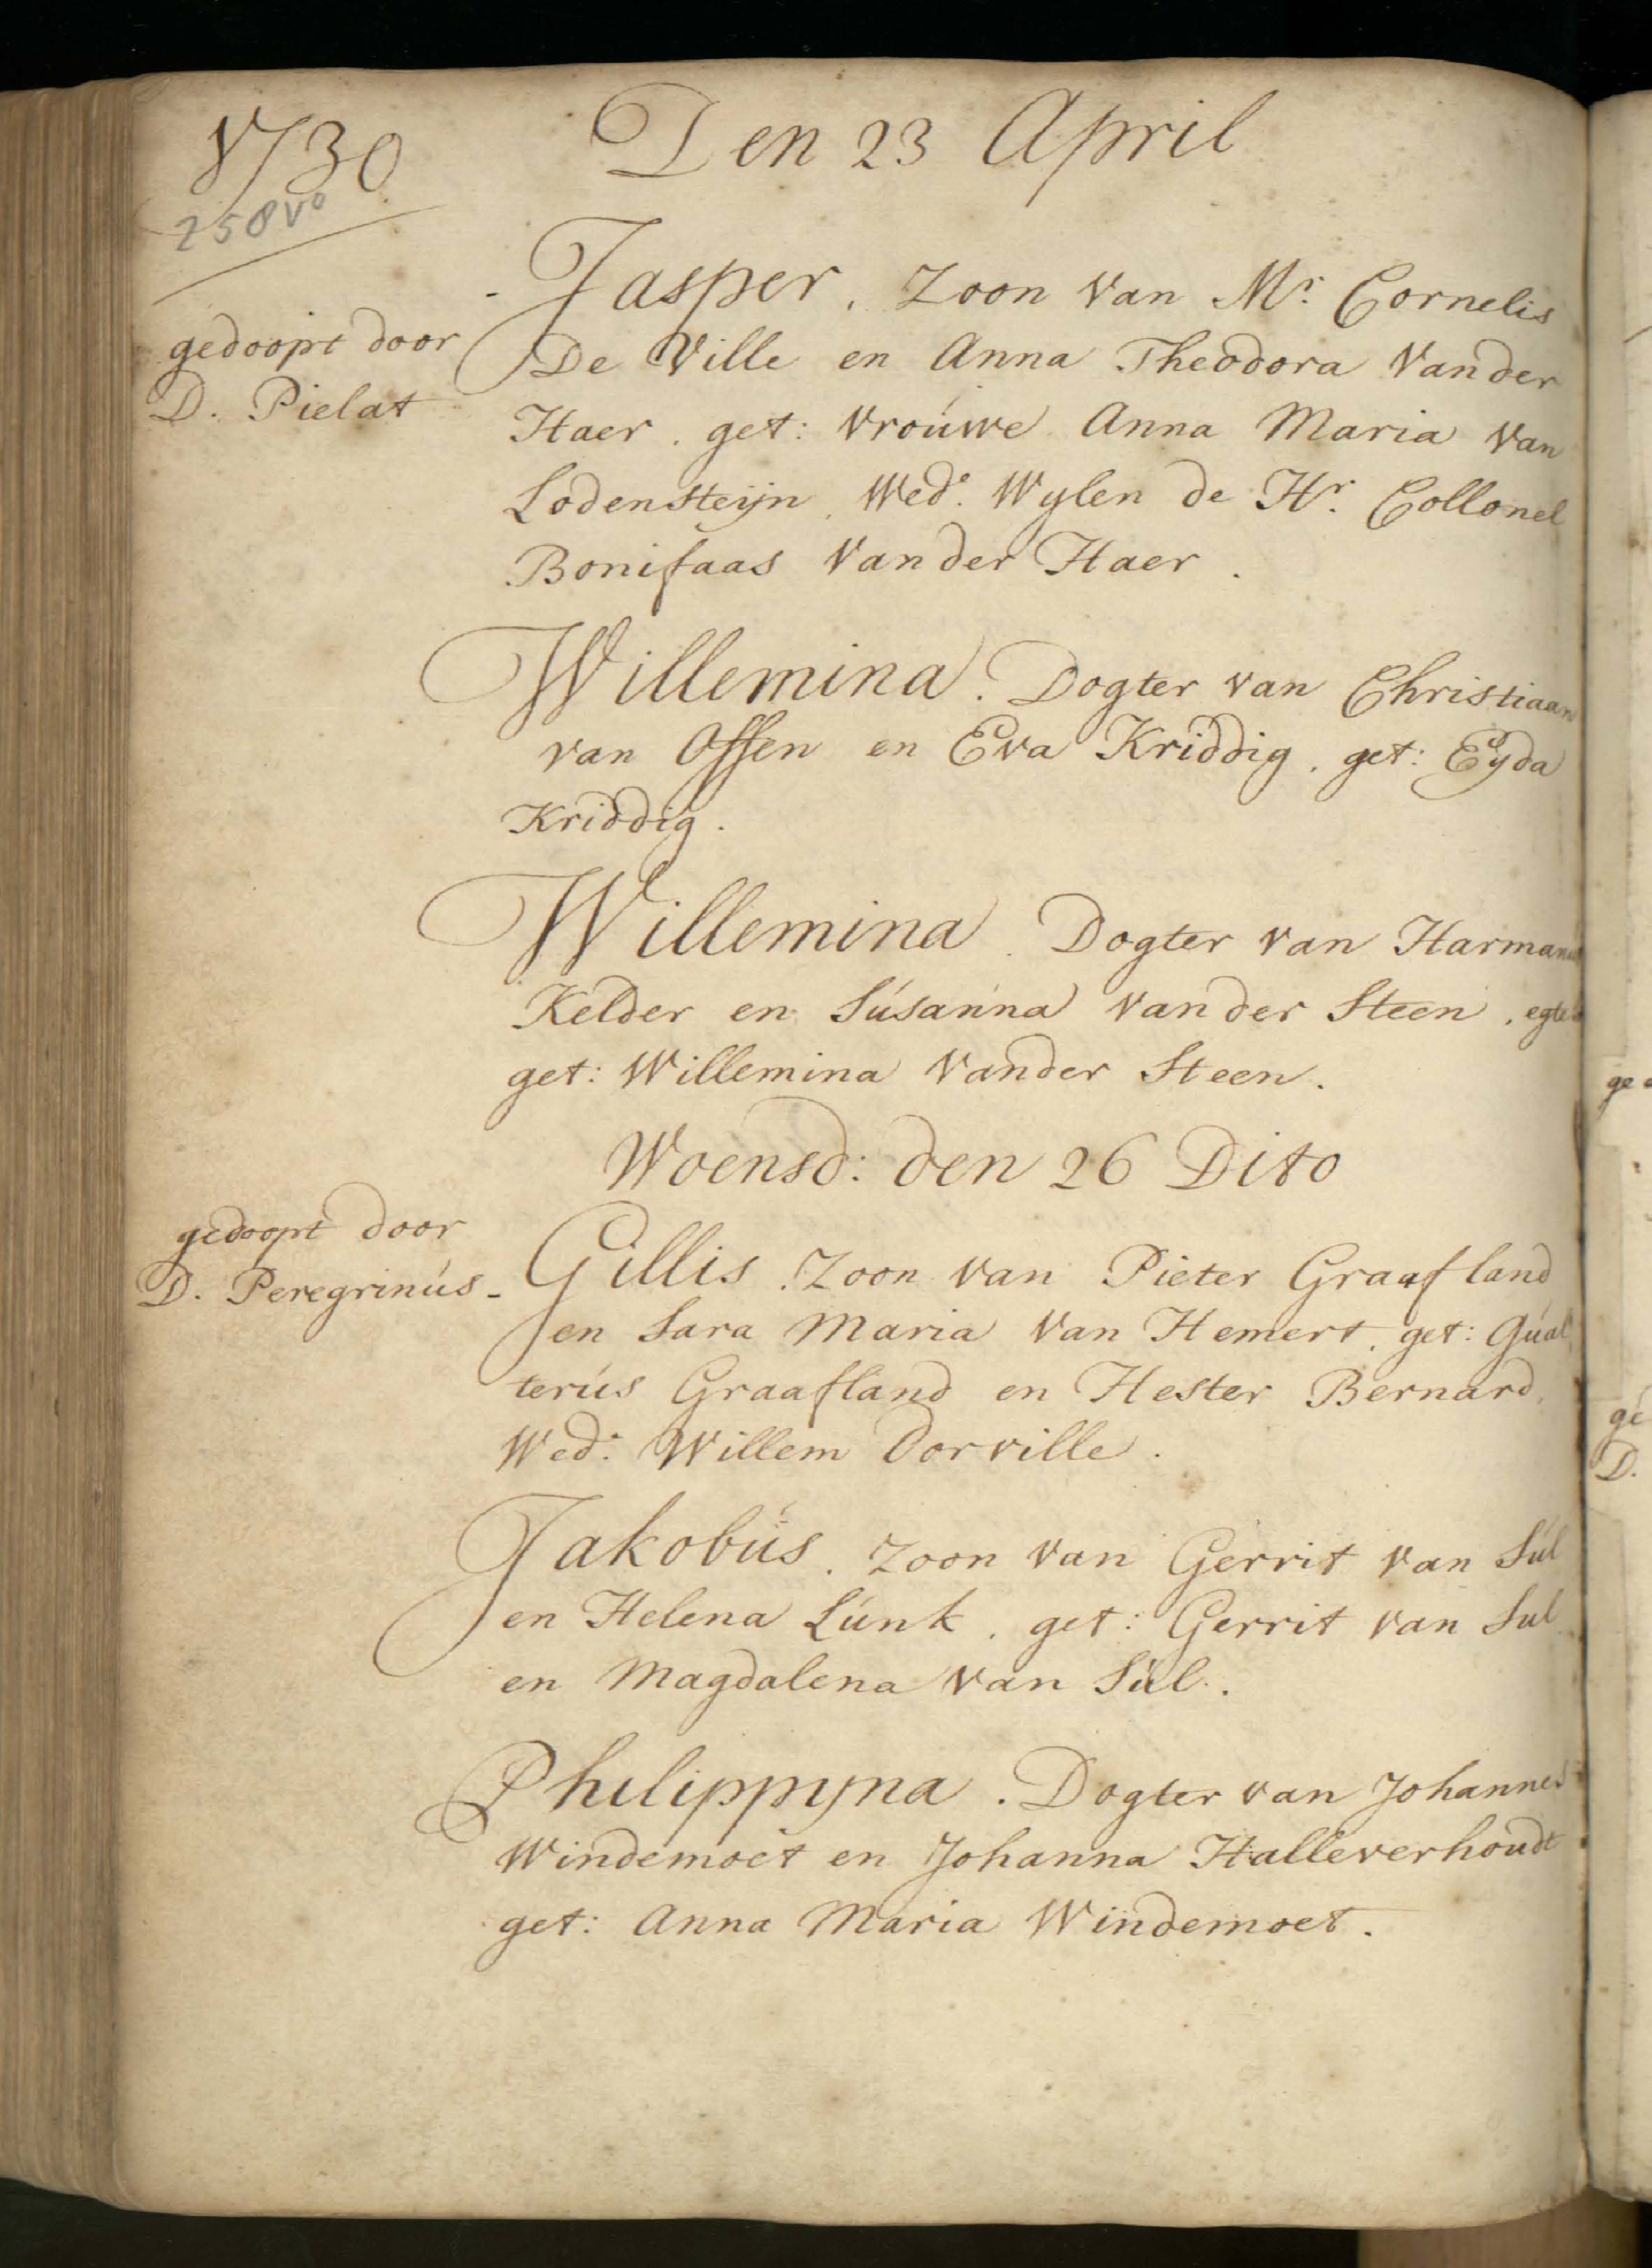 1730
258vo
Den 23 April
gedoopt door
D. Pielat
Jasper. Zoon van Mr. Cornelis
De Ville en Anna Theodora Vander
Haer. get: Vroúwe Anna Maria Van
Lodensteijn. Wede. Wylen de Hr. Collonel
Bonifaas Vander Haer.
Willemina. Dogter van Christiaan
van Offen en Eva Kriddig. get: Eyda
Kriddig.
Willemina. Dogter van Harmanus
Kelder en Súsanna Vander Steen, egtel
get: Willemina Vander Steen.
Woensd: den 26 Dito
gedoopt door
D. Peregrinús
Gillis. Zoon van Pieter Graafland
en Sara Maria Van Hemert. get: Gúal
terús Graafland en Hester Bernard,
Wede. Willem Dorville.
Jakobús. Zoon van Gerrit van Súl
en Helena Lúnk. get: Gerrit van Sul
en Magdalena Van Súl.
Philippyna. Dogter van Johannes
Windemoet en Johanna Halleverhoudt
get: Anna Maria Windemoet.